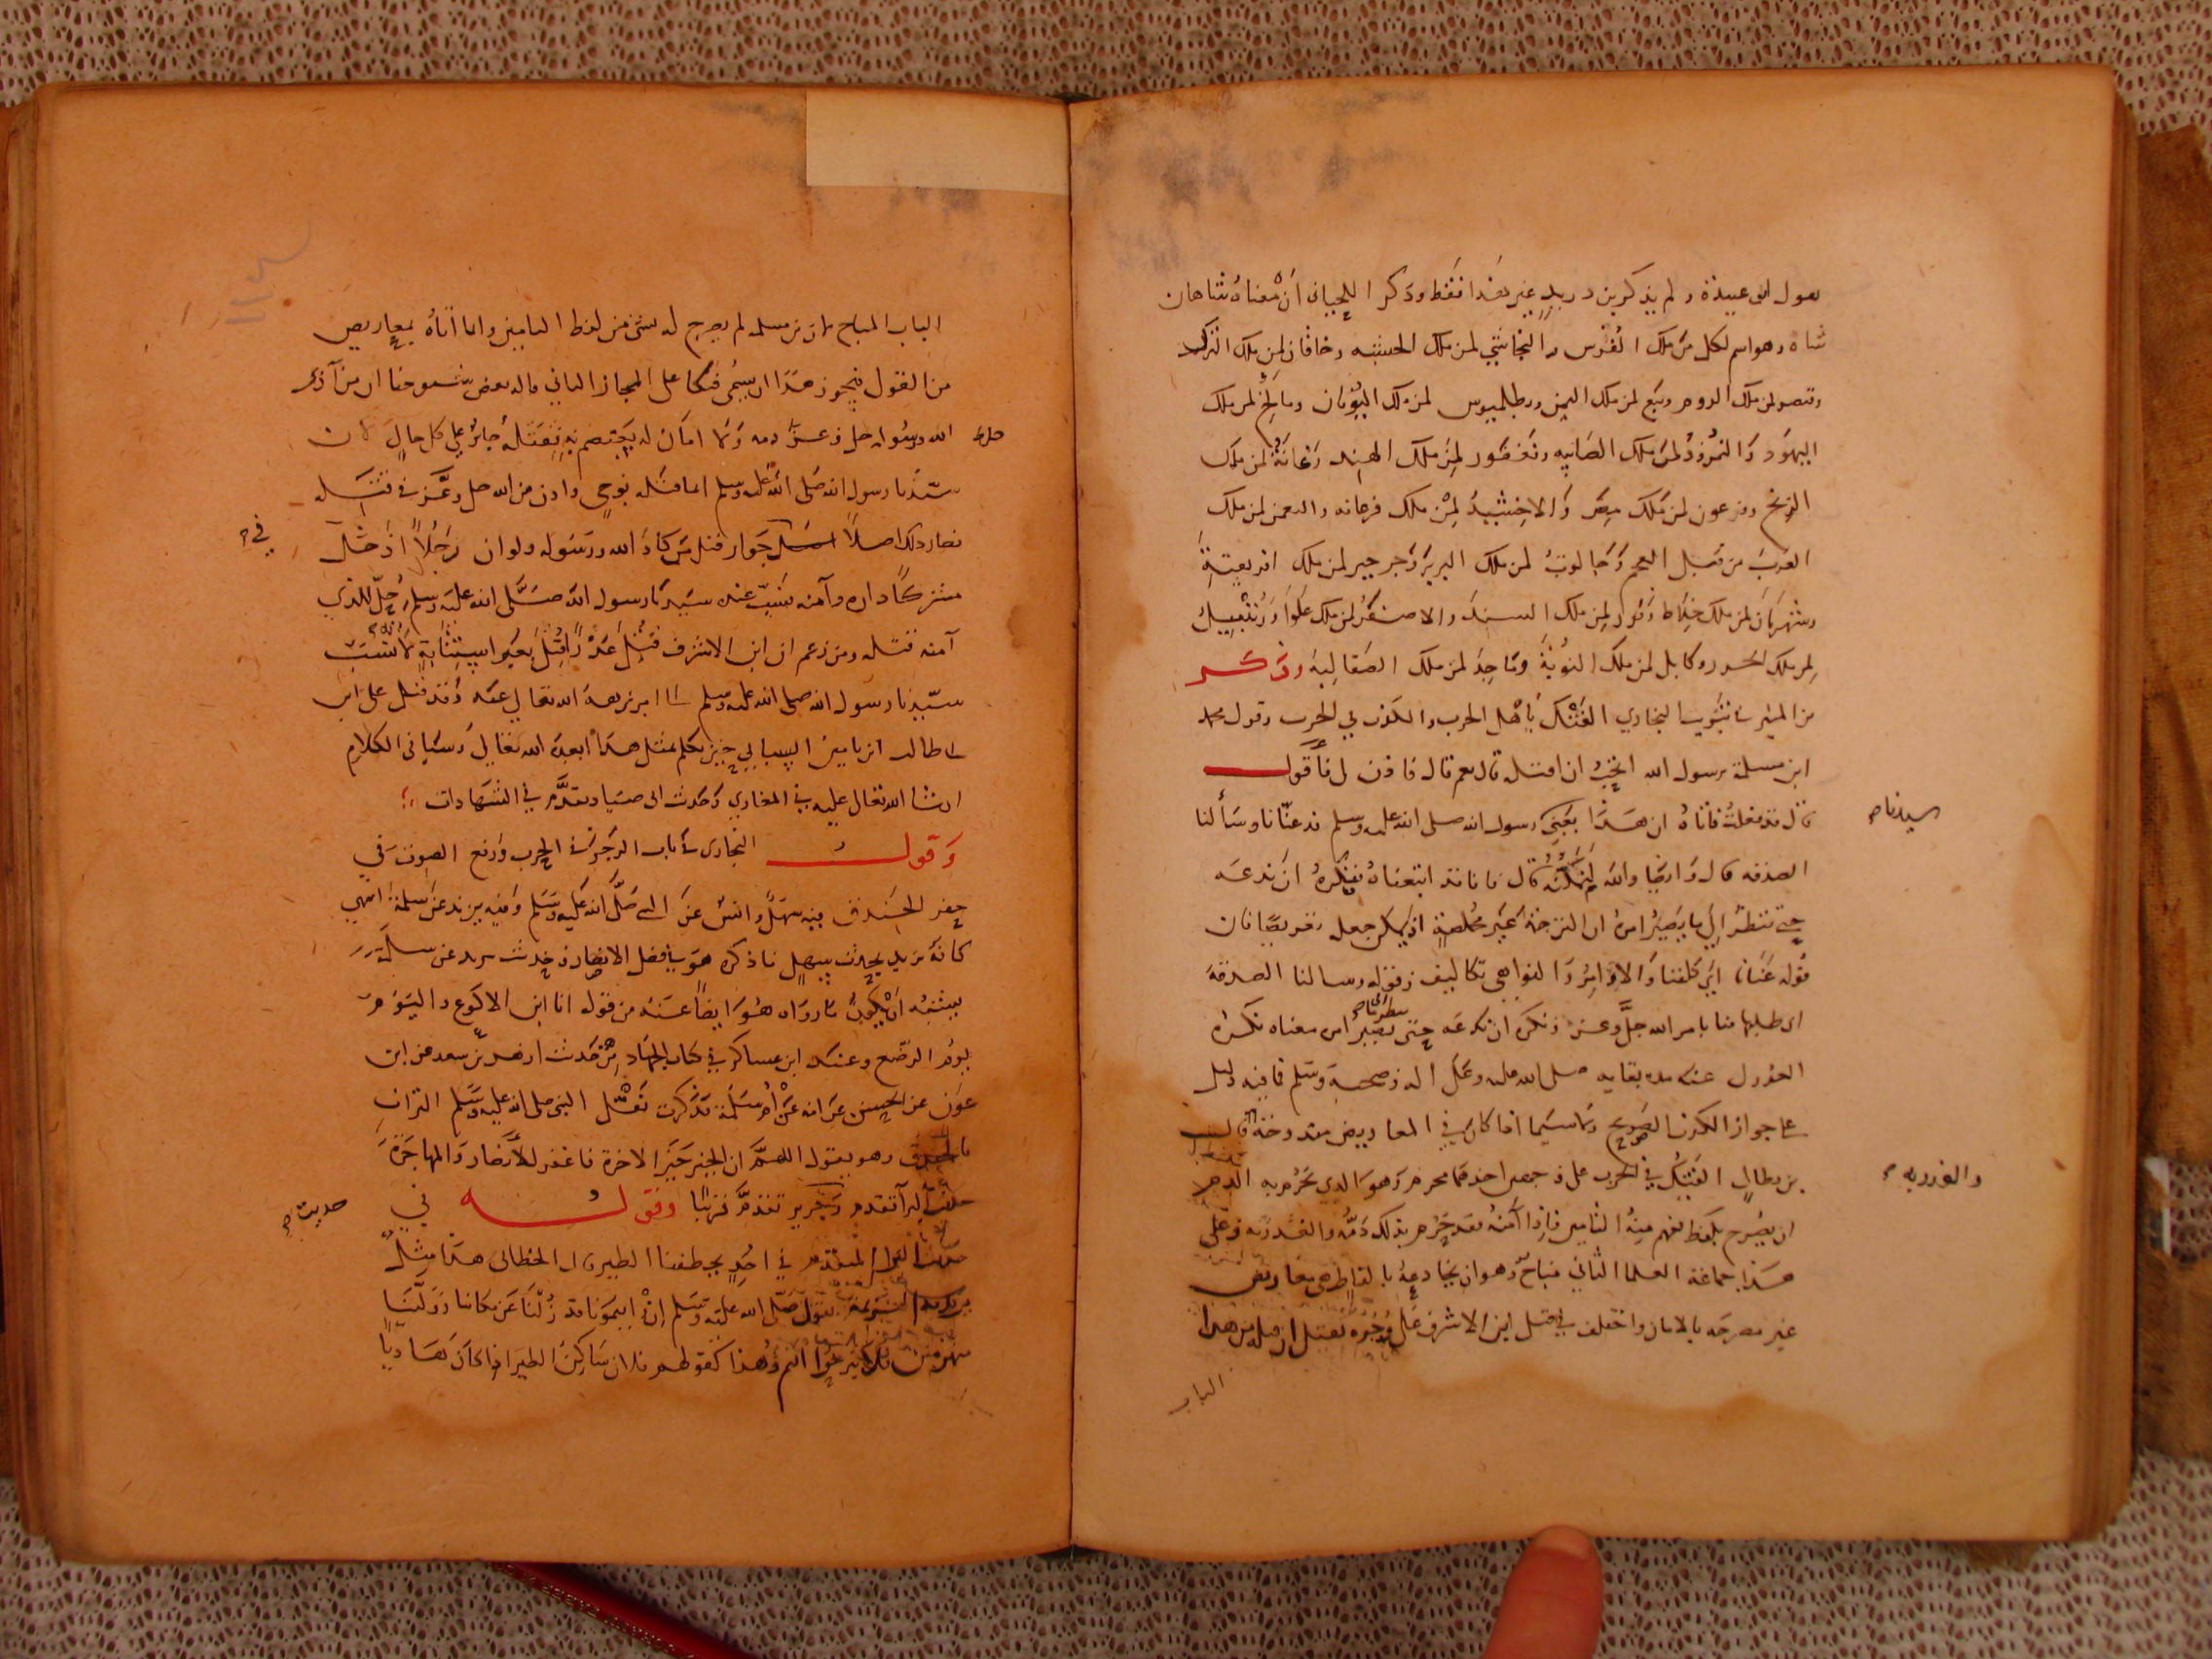 يقول ابن عبيدة ولم يذكر بن دريد غير هذا فقط وذكر اللحياني ان معناه شاهان
شاه وهو اسم لكل من ملك الفرس والنجاشي لمن ملك الحبشه وخاقان لمن ملك الترك
وقيصر لمن ملك الروم وتبع لمن ملك اليمن وبطلميوس لمن ملك اليونان ومالخ لمن ملك
اليهود والنمرود لمن ملك الصابيه ونغفور لمن ملك الهند وغانة لمن ملك
الزنج وفرعون لمن ملك مصر والاخشيد لمن ملك فرغانه والنعمن لمن ملك
العرب من قبل العجم وجالوت لمن ملك البربر وجرجير لمن ملك افريقية
وشهرمان لمن ملك خلاط وفور لمن ملك السند والاصفر لمن ملك علوا ورتبيل
لمن ملك الخزر وكابل لمن ملك النوبة وماجد لمن ملك الصقالبة وذكر
بن المنير تبويب البخاري الفتك باهل الحرب والكذب في الحرب وقول محمد
ابن مسلمة يرسول الله اتحب ان اقتله قال نعم قال فاذن لي فأقول
قال قد فعلت فاتاه ان هذا يعني رسول الله صلى الله عليه وسلم قد عنانا وسألنا
سيدنا
الصدقه قال وايضا والله لتملنه قال فانا قد اتبعناه فنكره ان ندعه
حتى ننظر الي ما يصير امره ان الترجمة غير مخلصة اذ جعل
قوله عنانا اي كلفنا والاوامر والنواهي تكاليف وقوله وسالنا الصدقة
اي طلبها منا بامر الله جل وعز ونكره ان ندعه حتى ننظر الي ما يصير امره معناه نكره
العدول عنه مدة بقايه صلى الله عليه وعلى اله وصحبه وسلم فما فيه دليل
على جواز الكذب الصريح ولا سيما اذا كان في المعاريض مندوحة قال
بن بطال الفتك في الحرب على وجهين احدهما محرم وهو الذي تحرم به الدم
والغدر به
ان يصرح بلفظ يفهم منه التامين فاذا آمنه فقد حرم بذلك دمه والغدر به وعلى
هذا جماعة العلما الثاني مباح وهو ان يخادعه بالفاظ هي معاريض
غير مصرحه بالامان واختلف في قتل ابن الاشرف على وجوه فقيل ان قتله من هذا
الباب
الباب المباح لان بن مسلمه لم يصرح له بشي من لفظ التامين وانما اتاه بمعاريض
من القول فيجوز هذا ان يسمى فتكا على المجاز الثاني قاله بعض شيوخنا ان من آذى
الله ورسوله حل وعز دمه ولا امان له يعتصم به فقتله جايز على كل حال لان
سيدنا رسول الله صلى الله عليه وسلم انما قتله بوحي واذن من الله جل وعز في قتله
فصار ذلك اصلا جواز قتل من كاد الله ورسوله ولو ان رجلا ادخل
في
مشركا داره وآمنه فسب عنده سيدنا رسول الله صلى الله عليه وسلم حل للذي
آمنه قتله ومن زعم ان ابن الاشرف قتل غدرا قتل بغير استتابة لانه سب
سيدنا رسول الله صلى الله عليه وسلم
ابن يامين
ان شا الله تعالى عليه في المغازي وحديث ابن صياد تقدم في الشهادات
وقول البخاري باب الرجز في الحرب ورفع الصوت في
حفر الخندق فيه سهل وانس عن النبي صلى الله عليه وسلم وفيه يزيد عن سلمة انتهى
كانه يريد بحديث سهل ما ذكره هو في فضل الانصار وحديث يزيد عن سلمة
يشبه ان يكون ما رواه هو ايضا عنه من قوله انا ابن الاكوع واليوم
يوم الرضع وعند ابن عساكر في كتاب الجهاد من حديث ازهر بن سعد عن ابن
عون عن الحسن عن امه عن ام سلمة تذكرت نقل النبي صلى الله عليه وسلم التراب
بالخندق وهو يقول اللهم ان الخير خير الاخرة فاغفر للأنصار والمهاجرة
حديث البرآ تقدم وجرير تقدم قريبا وقوله في
حديث
حديث البرا المتقدم في احد تخطفنا الطير قال الخطابي هذا مثل
يريد به الهزيمة يقول صلى الله عليه وسلم ان رايتمونا قد زلنا عن مكاننا وولينا
منهزمين فلا تبرحوا انتم وهذا كقولهم فلان ساكن الطير اذا كان هاديا